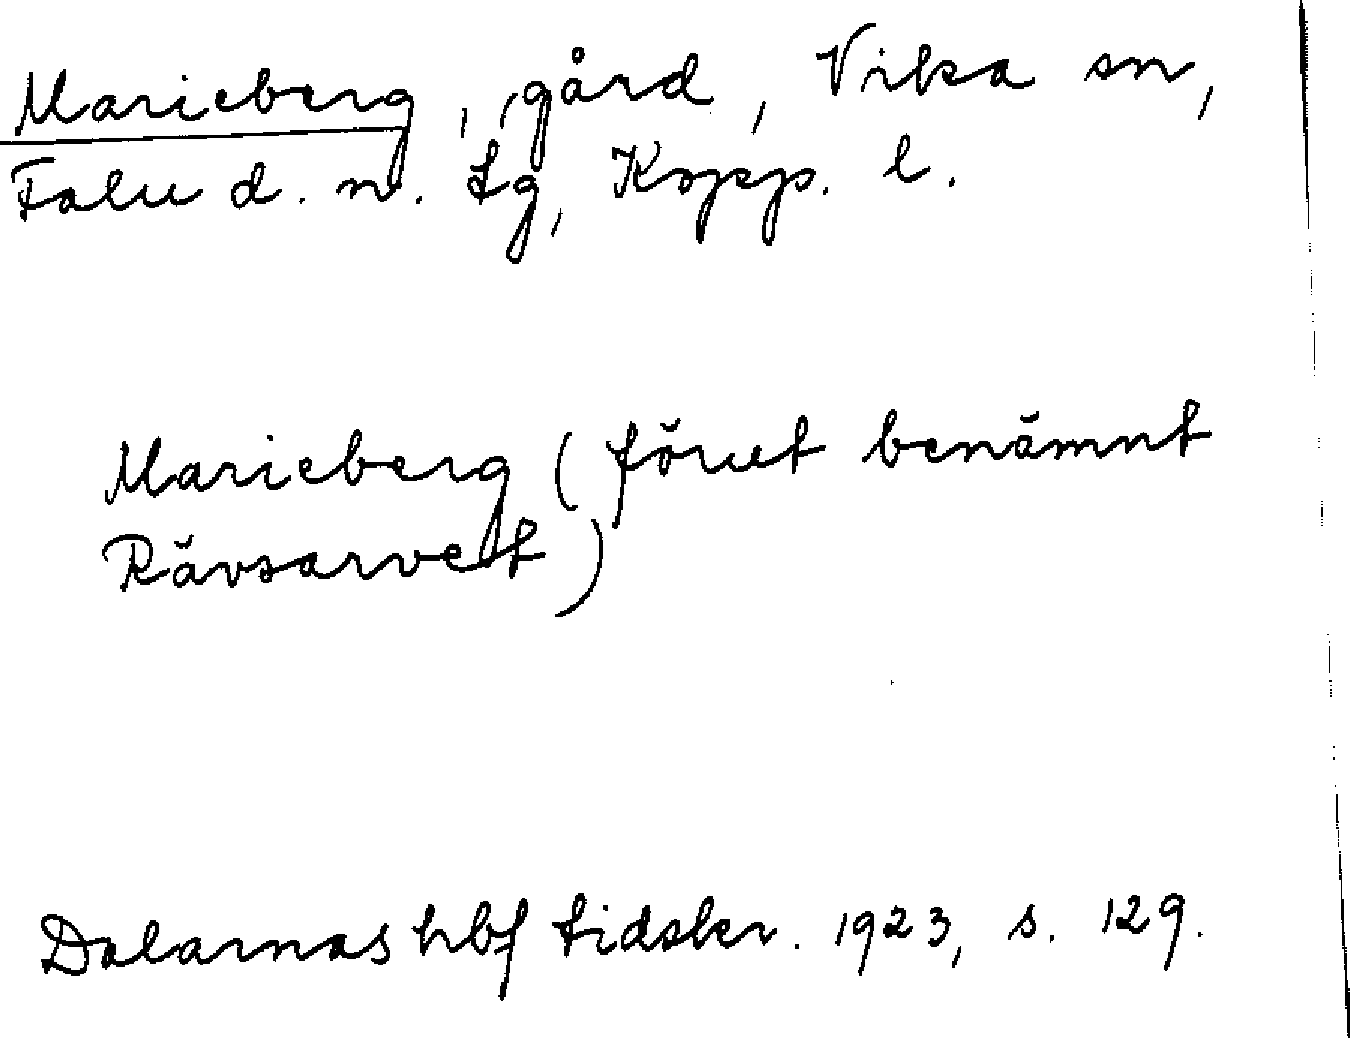 Marieberg, gård, Vika sn,
Falu d. n. tg, Kopp. l.
Marieberg (förut benämnt
Rävsarvet)
Dalarnas hbf tidskr. 1923, s. 129.